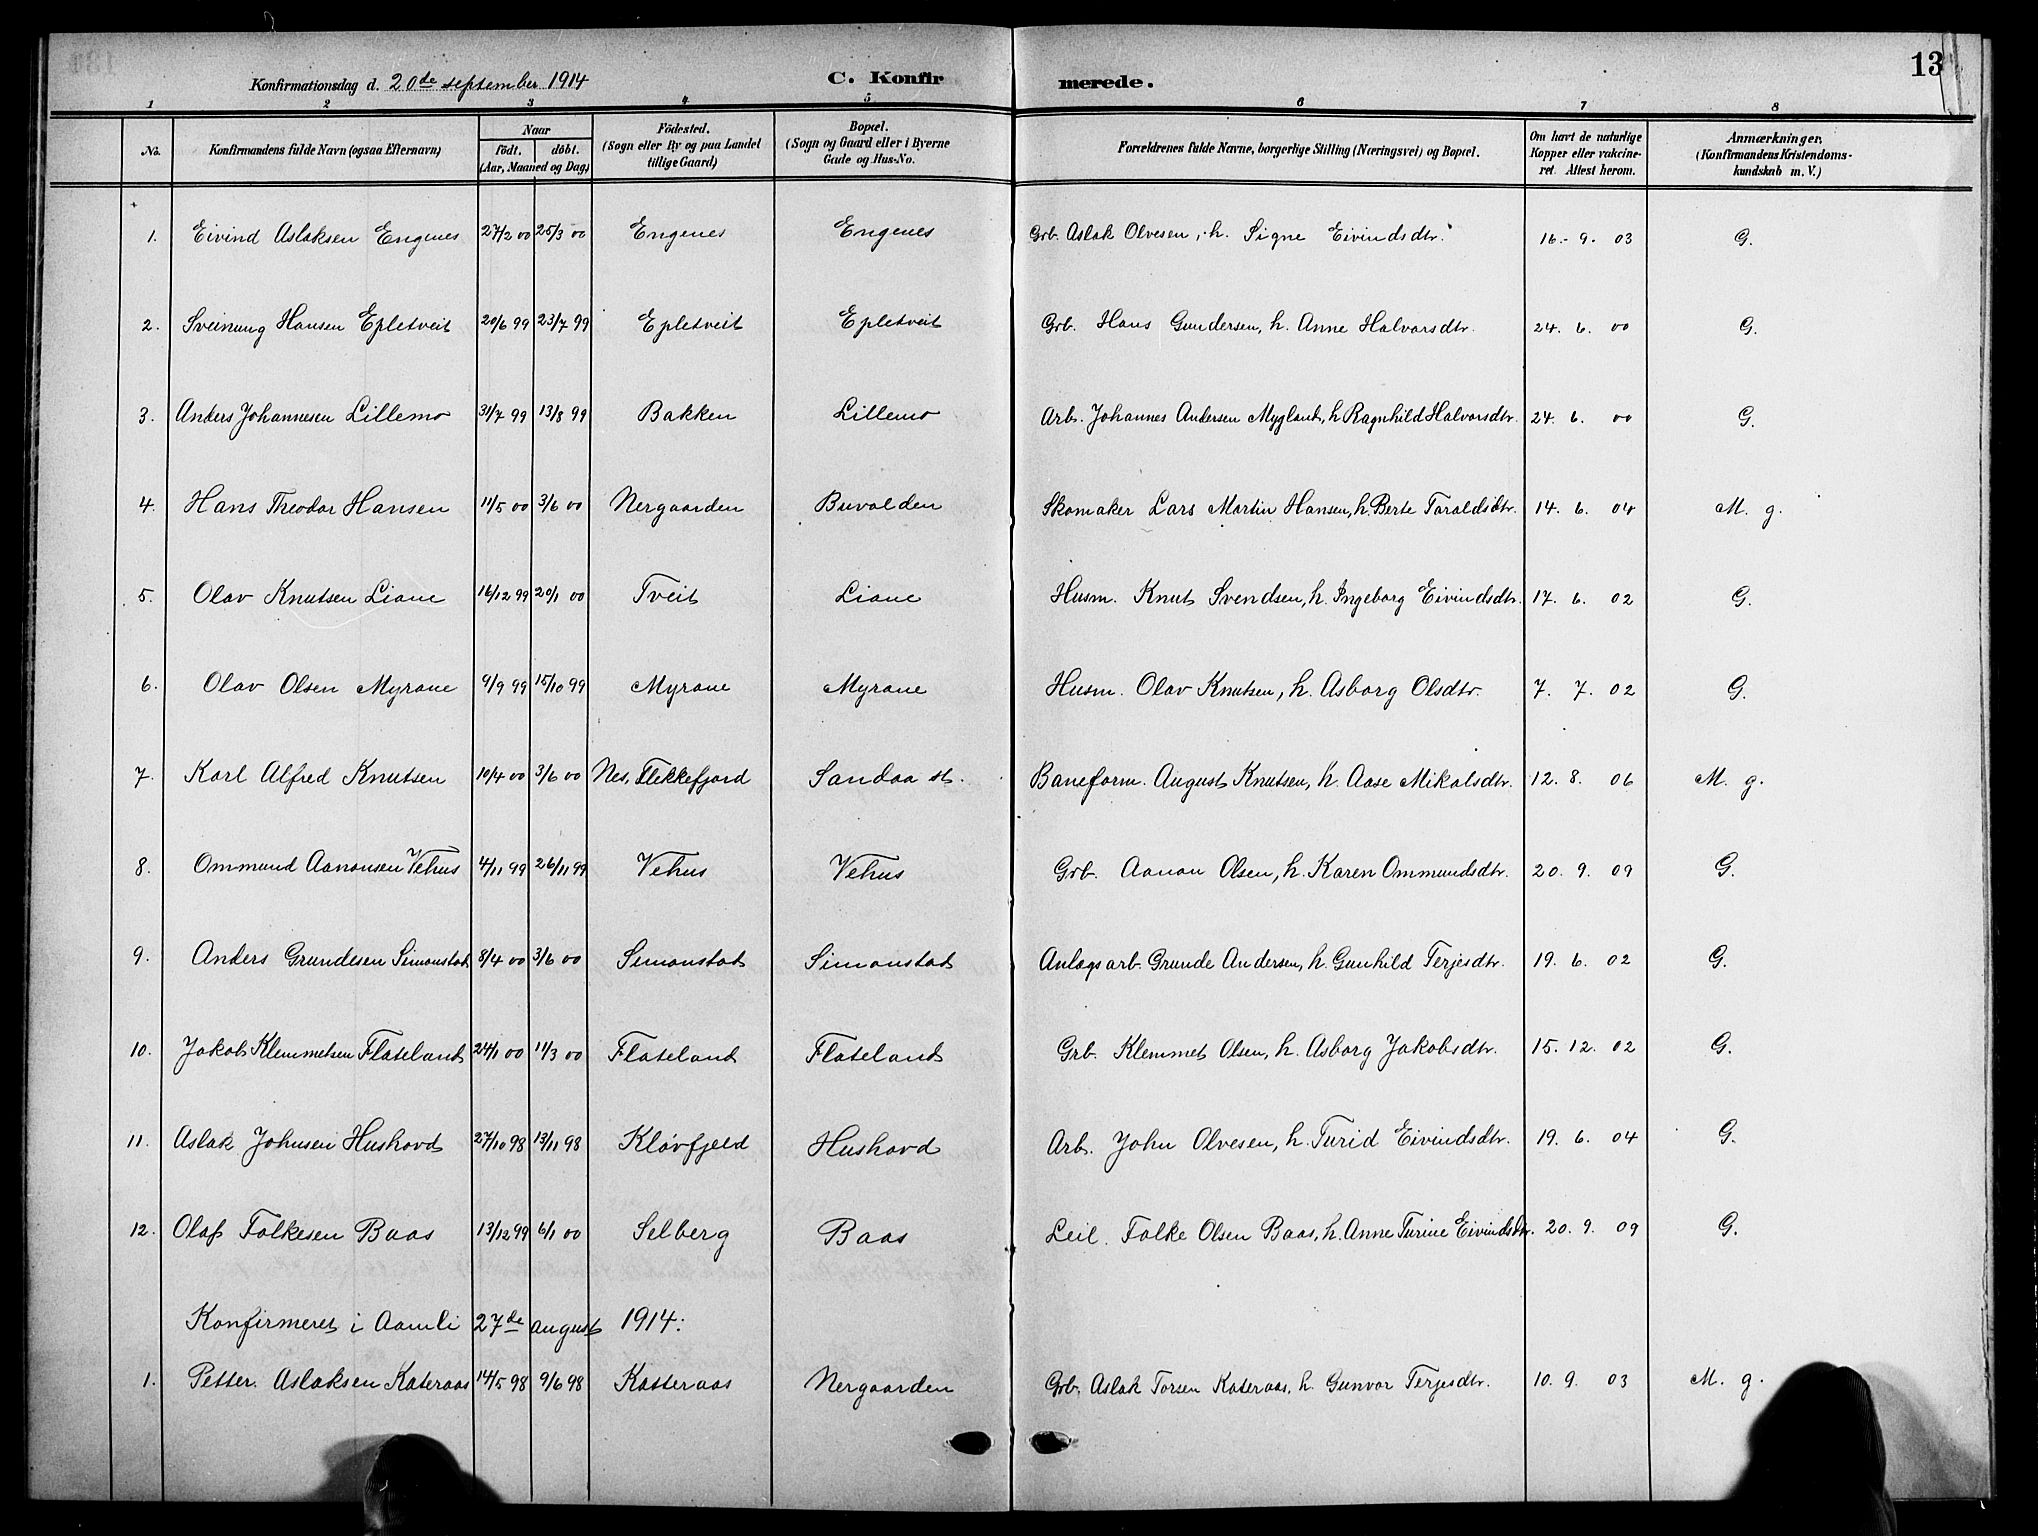 Konfirmationsdag d. 20de september 1914 C. Konfirmerede. 13
1 2 3 4 5 6 7 8
No. Konfirmandens fulde Navn (ogsaa Efternavn) Naar født. døbt. (Aar, Maaned og Dag) Fødested. (Sogn eller By og paa Landet tillige Gaard) Bopæl. (Sogn og Gaard eller i Byerne Gade og Hus-No. Forældrenes fulde Navne, borgerlige Stilling (Næringsvei) og Bopæl. Om havt de naturlige Kopper eller vakcineret. Attest herom. Anmærkninger. (Konfirmandens Kristendomskundskab m. V.)
1. Eivind Aslaksen Engenes 27/2 00 25/3 00 Engenes Engenes Grb. Aslak Olvesen, h. Signe Eivindsdtr. 16. 9. 03 G.
2. Sveinung Hansen Epletveit 20/6 99 23/7 99 Epletveit Epletveit Grb. Hans Gundersen, h. Anne Halvorsdtr. 24. 6. 00 G.
3. Anders Johannesen Lillemo 31/7 99 13/8 99 Bakken Lillemo Arb. Johannes Andersen Mygland, h Ragnhild Halvorsdtr. 24. 6. 00 G.
4. Hans Theodor Hansen 11/5 00 3/6 00 Nergaarden Buvolden Skomaker Lars Martin Hansen, h. Berte Taraldsdtr. 14. 6. 04 M. g.
5. Olav Knutsen Liane 16/12 99 20/1 00 Tveit Liane Husm. Knut Svendsen, h. Ingeborg Eivindsdtr. 17. 6. 02 G.
6. Olav Olsen Myrane 9/9 99 15/10 99 Myrane Myrane Husm. Olav Knutsen, h. Asborg Olsdtr. 7. 7. 02 G.
7. Karl Alfred Knutsen 10/4 00 3/6 00 Nes, Flekkefjord Sandaa st. Baneform. August Knutsen, h. Aase Mikalsdtr. 12. 8. 06 M. g.
8. Ommund Aanonsen Vehus 4/11 99 26/11 99 Vehus Vehus Grb. Aanon Olsen, h. Karen Ommundsdtr. 20. 9. 09 G.
9. Anders Grundesen Simonstad 8/4 00 3/6 00 Simonstad Simonstad Anlægsarb. Grunde Andersen, h. Gunhild Terjesdtr. 19. 6. 02 G.
10. Jakob Klemmetsen Flateland 24/1 00 11/3 00 Flateland Flateland Grb. Klemmet Olsen, h. Asborg Jakobsdtr. 15. 12. 02 G.
11. Aslak Johnsen Hushovd 27/10 98 13/11 98 Kløvfjeld Hushovd Arb. John Olvesen, h. Turid Eivindsdtr. 19. 6. 04 G.
12. Olaf Folkesen Baas 13/12 99 6/1 00 Selberg Baas Leil. Folke Olsen Baas, h. Anne Turine Eivindsdtr. 20. 9. 09 G.
Konfirmeret i Aamli 27de august 1914:
1. Petter Aslaksen Kateraas 14/5 98 9/6 98 Katteraas Nergaarden Grb. Aslak Torsen Kateraas, h. Gunvor Terjesdtr. 10. 9. 03 M. g.